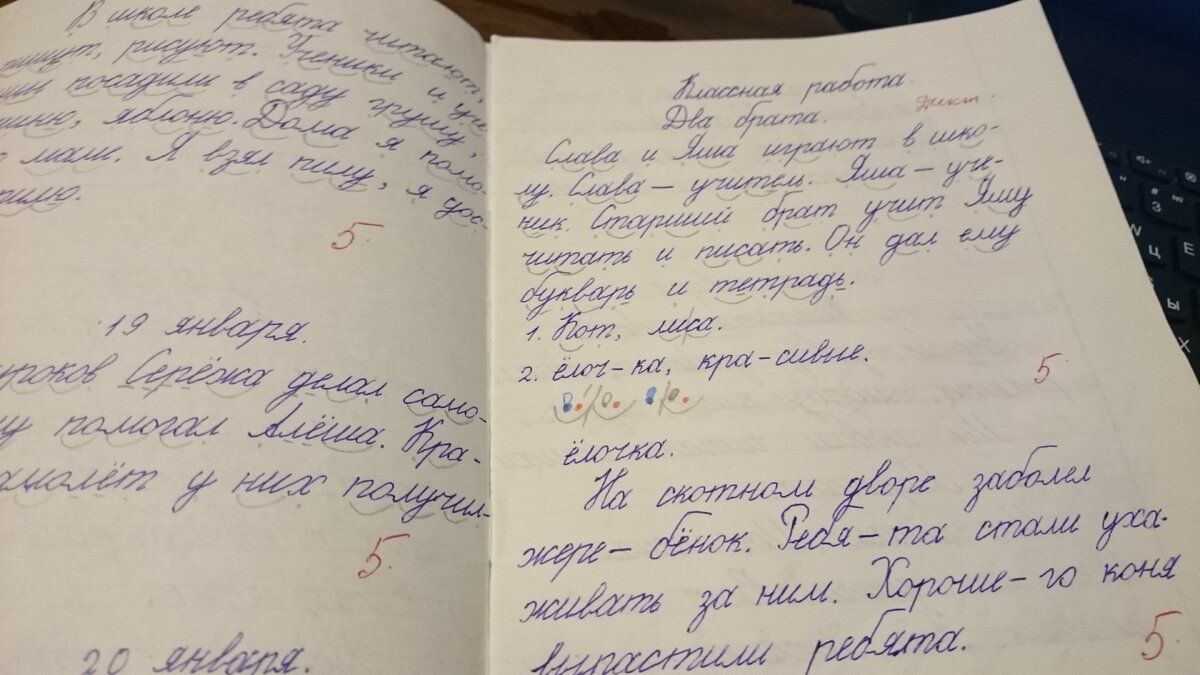 В школе ребята читают,
пишут, рисуют. Ученики и уче-
посадили в саду грушу,
яблоню. Дома я помо-
маме. Я взял пилу, я дос-
пилю.
5.
19 января.
уроков Серёжа делал само-
помогал Алёша. Кра-
самолёт у них получил-
5.
20 января.
Классная работа.
Дикт.
Два брата.
Слава и Яша играют в шко-
лу. Слава – учитель. Яша – уче-
ник. Старший брат учит Яшу
читать и писать. Он дал ему
букварь и тетрадь.
1. Кот, лиса.
2. ёлоч-ка, кра-сивые.
5
ёлочка.
На скотном дворе заболел
жере-бёнок. Ребя-та стали уха-
живать за ним. Хороше-го коня
вырастили ребята.
5.